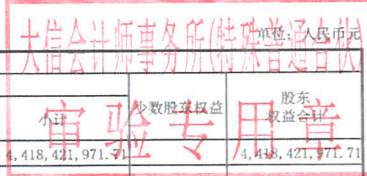 大信会计师事务所(特殊普通合伙)
单位：人民币元
审验专用章
小计
少数股东权益
股东
权益合计
4,418,421,971.71
4,418,421,971.71